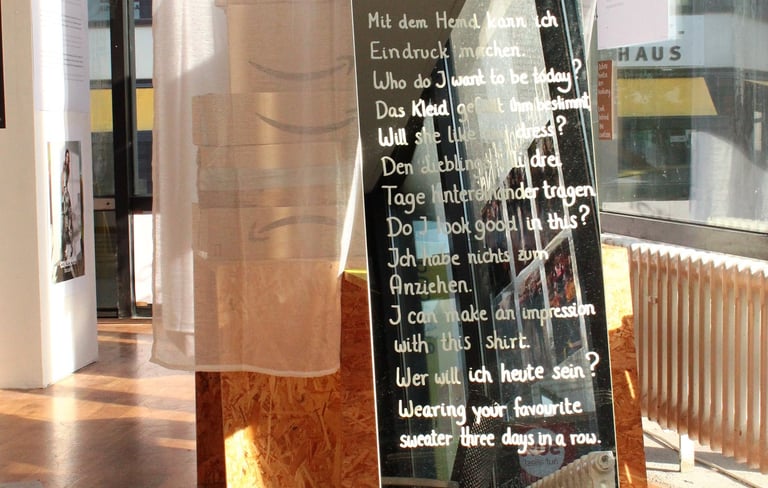 HAUS
Mit dem Hemd kann ich
Eindruck machen.
Who do I want to be today?
Das Kleid gefällt ihm bestimmt.
Will she like my dress?
Den Lieblingspulli drei
Tage hintereinander tragen.
Do I look good in this?
Ich habe nichts zum
Anziehen.
I can make an impression
with this shirt.
Wer will ich heute sein?
Wearing your favourite
sweater three days in a row.